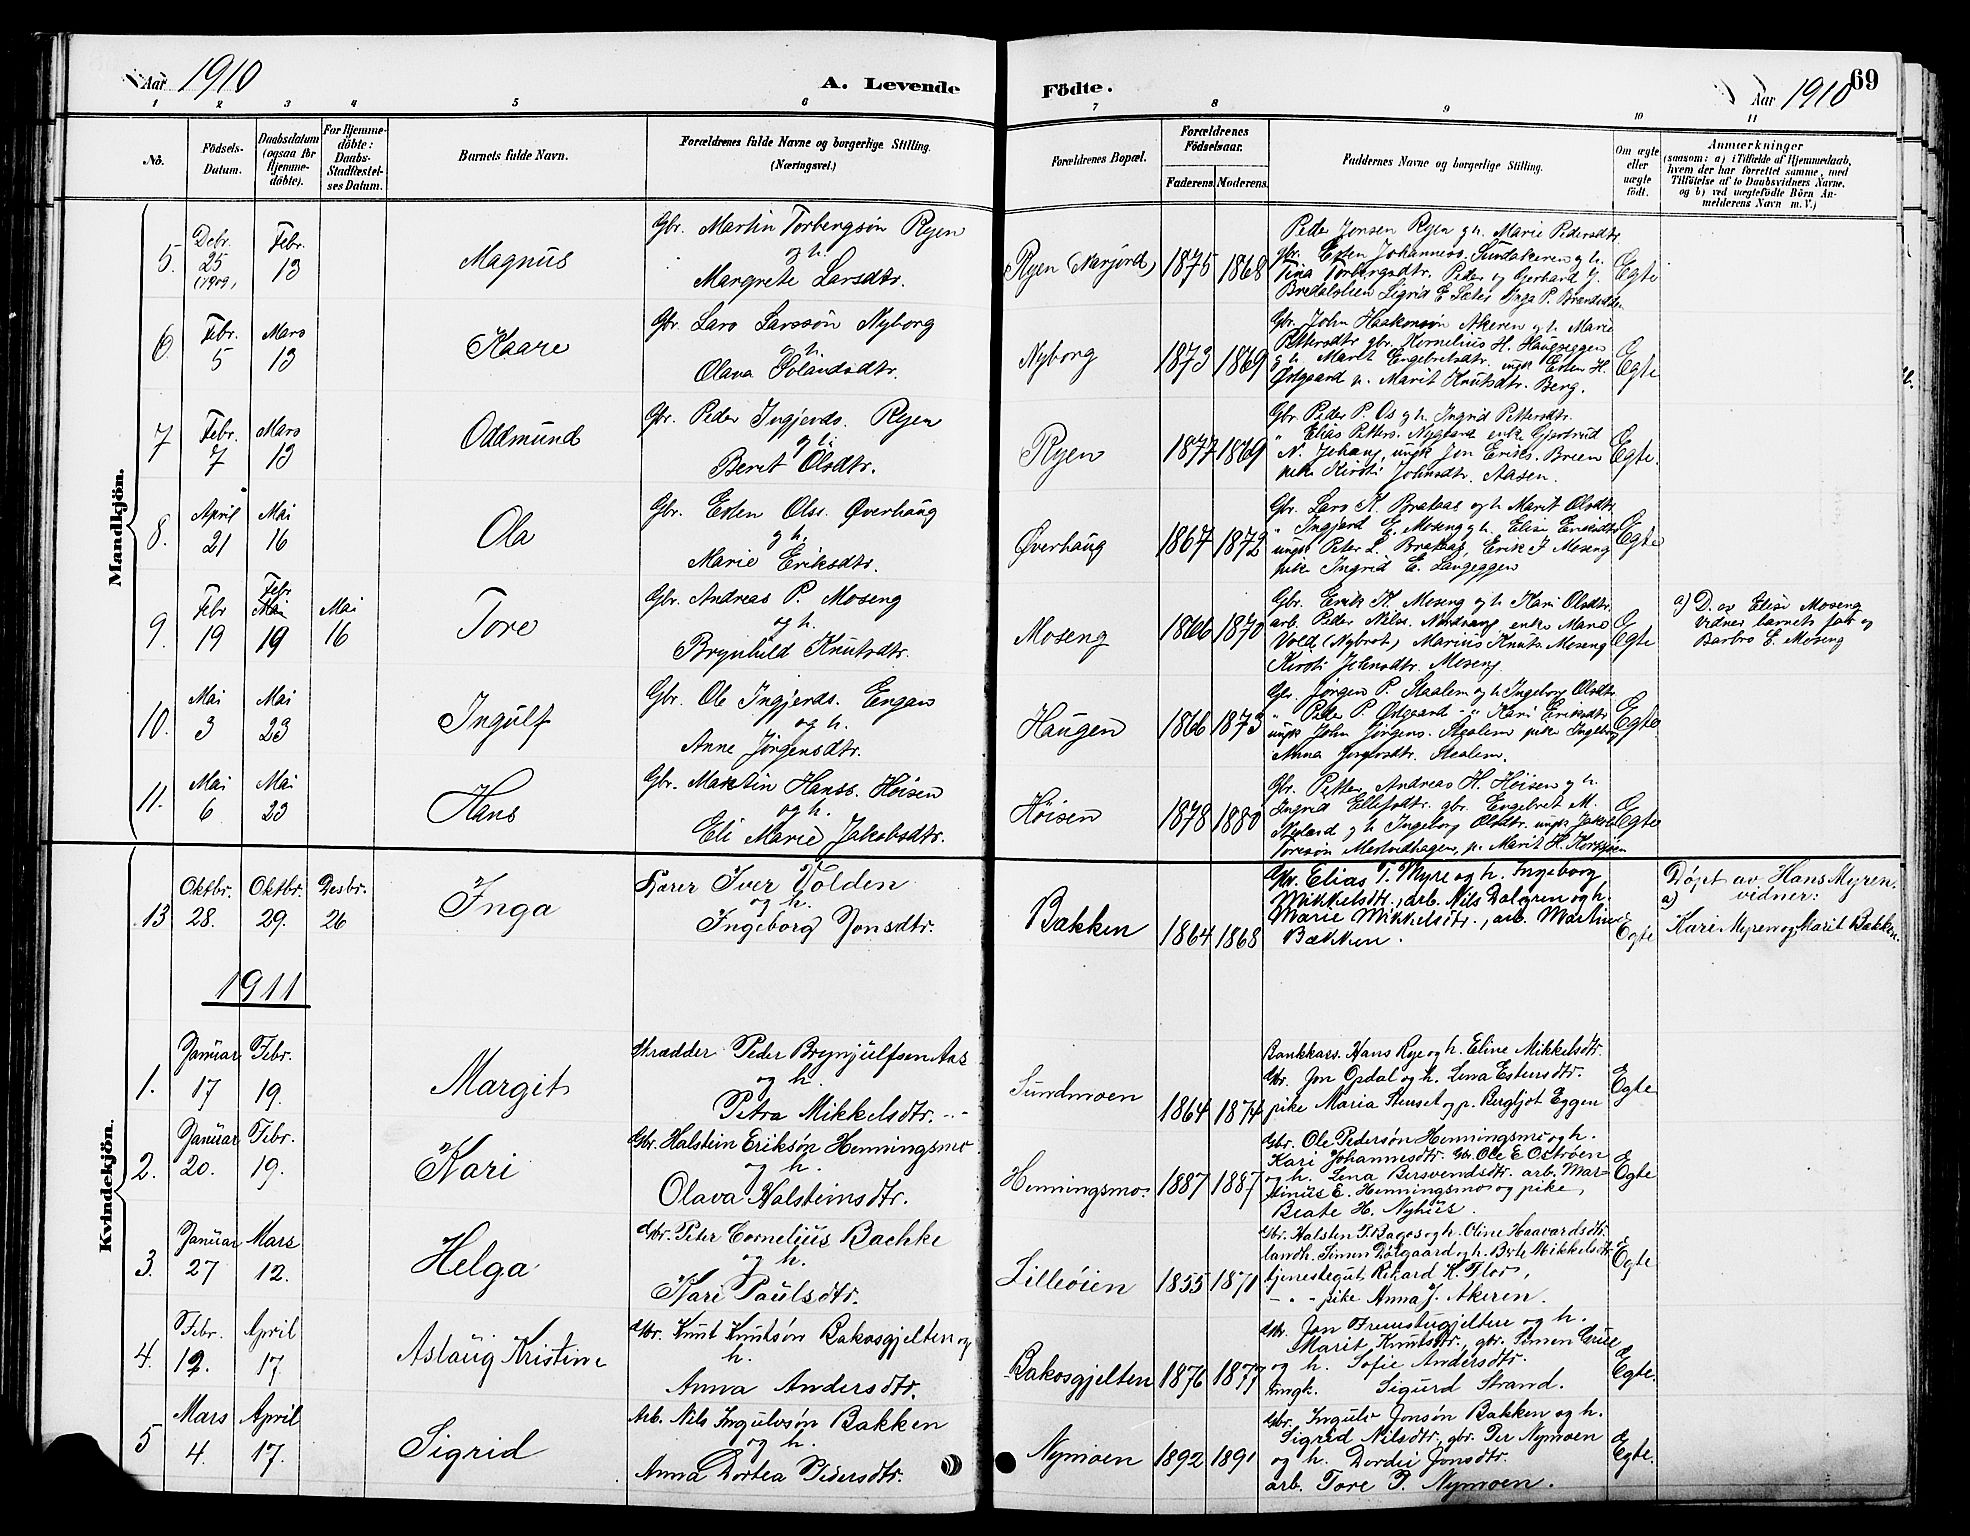 Aar 1910 A. Levende Födte. Aar 1910 69
1 2 3 4 5 6 7 8 9 10 11
No.
Födsels-Datum.
Daabsdatum (ogsaa for Hjemme-döbte).
For Hjemme-döbte: Daabs-Stadfæstel-ses Datum.
Barnets fulde Navn.
Forældrenes fulde Navne og borgerlige Stilling.
(Næringsvei.)
Forældrenes Bopæl.
Forældrenes Födselsaar.
Faderens. Moderens.
Faddernes Navne og borgerlige Stilling.
Om ægte eller uægte födt.
Anmærkninger
(saasom: a) i Tilfælde af Hjemmedaab,
hvem der har forrettet samme, med
Tilföielse af to Daabsvidners Navne,
og b) ved uægtefödte Börn An-
melderens Navn m. V.)
Mandkjön.
5. Debr. 25 (1909) Febr. 13 Magnus
Gbr. Martin Torbergsøn Ryen
og h.
Margrete Larsdtr.
Ryen (Narjord) 1875 1868
Peder Jonsen Ryen g h. Marie Pedersdtr.
gbr. Esten Johanness. Sundakeren g h.
Tina Torbergsdtr. Peder og Gerhard J.
Bredalslien Sigrid E Sæter Inga P.
Egte
6. Febr. 5 Mars 13 Kaare
Gbr. Lars Larssøn Nyborg
og h.
Olava Tolandsdtr.
Nyborg 1873 1869
Gbr. John Haakonsøn Akeren g h Marie
Pettersdtr gbr. Kornelius H. Haugseggen
g h. Marit Engebretsdtr. ungk Esten H.
Østgaard p. Marit Knutsdtr. Berg.
Egte
7 Febr. 7 Mars 13 Oddmund
Gbr. Peder Ingjerds. Ryen
og h.
Beret Olsdtr.
Ryen 1877 1869
Gbr Peder P. Os g h Ingrid Pettersdtr.
" Elias Petters. Nygaard enke Gjertrud
N. Jehang, ungk Jon Eriks. Breen
pike Kirsti Johnsdtr. Aasen.
Egte.
8. April 21 Mai 16 Ola
Gbr. Esten Olss. Øverhaug
og h.
Marie Eriksdtr.
Øverhaug 1867 1872
Gbr. Lars K. Brataas og h Marit Olsdtr
" Ingjerd E. Moseng g h. Elise Eriksdtr
ungk Peter L. Brataas, Erik J Moseng
pike Ingrid E. Langeggen
Egte
9. Febr 19 Febr. Mai 19 Mai 16 Tore
Gbr. Andreas P. Moseng
og h.
Brynhild Knutsdtr.
Moseng 1866 1870
Gbr. Erik K. Moseng g h Kari Olsdtr.
arb. Peder Nils. Nordvang enke Marie
Vold (Nybrot) Marius Knuts. Moseng
Kirsti Johnsdtr. Moseng
Egte
a) D. av Elise Moseng
vidner barnets far og
Barbro E. Moseng
10. Mai 3 Mai 23 Ingulf
Gbr. Ole Ingjerds. Engan
og h.
Anne Jørgensdtr.
Haugen 1866 1873
Gbr. Jørgen P. Staalem g h Ingeborg Olsdtr
" Peder P. Østgaard - " Kari Eriksdtr
ungk John Jørgens. Staalem pike Ingeborg
Anna Staalem.
Egte
11. Mai 6 Mai 23 Hans
Gbr. Martin Hanss. Høisen
og h.
Eli Marie Jakobsdtr.
Høisen 1878 1880
Gbr. Petter Andreas H. Høisen g h.
Ingrid Ellefsdtr. gbr. Engebret M.
g h Ingeborg Olsdtr. ungk Jakob
Toresøn p. Marit H.
Egte
Kvindekjön.
13 Oktbr. 28. Oktbr. 29. Desbr. 26 Inga
Kjører Iver Volden
og h.
Ingeborg Jonsdtr.
Bakken 1864 1868
Gbr. Elias T. Myre og h. Ingeborg
Mikkelsdtr., arb. Nils Dalgren og h.
Marie Mikkelsdtr., arb. Martin
Bakken.
Egte
Døpt av Hans Myren.
a) vidner:
Kari Myren og Marit Bakken.
1911
1. Januar 17 Febr. 19. Margit
Skrædder Peder Brynjulfsen Aas
og h.
Petra Mikkelsdtr.
Sundmoen 1864 1874
Bankkass. Hans Rye og h. Eline Mikkelsdtr.
Gbr. Jon Opdal og h. Lena Estensdtr.
pike Maria Stenset og p. Bergljot Eggen
Egte
2. Januar 20. Febr. 19. Kari
Gbr. Halstein Eriksøn Henningsmo
og h.
Olava Halsteinsdtr.
Henningsmo. 1887 1887
Gbr. Ole Pedersøn Henningsmo og h.
Kari Johannesdtr. Gbr. Ole E Østrøen
og h. Lena Bersvendsdtr. arb. Mar-
tinius E. Henningsmo og pike
Beate H. Nyhus.
Egte
3. Januar 27 Mars 12. Helga
Gbr. Peter Cornelius Bachke
og h.
Kari Paulsdtr.
Lilleøien 1855 1871
Gbr. Halsten P. Bagos og h. Oline Haavardsdtr.
landh. Simen Dølgaard og h. Berte Mikkelsdtr
tjenestegut Rikard K. Flor,
- " - pike Anna J. Akeren.
Egte
4. Febr. 12. April 17. Aslaug Kristine
Gbr. Knut Knutsøn Bakosgjelten og
h.
Anna Andersdtr.
Bakosgjelten 1876 1877
Gbr. Jon og h.
Marit Knutsdtr., gbr. Simen Grue
og h. Sofie Andersdtr.
ungk. Sigurd Strand.
Egte.
5 Mars 4. April 17. Sigrid
Arb. Nils Ingulvsøn Bakken
og h.
Anna Dortea Pedersdtr.
Nymoen 1892 1891
Gbr. Ingulv Jonsøn Bakken og h.
Sigrid Nilsdtr., gbr. Per Nymoen
og h. Dordei Jonsdtr.
arb. Tore P. Nymoen.
Egte.